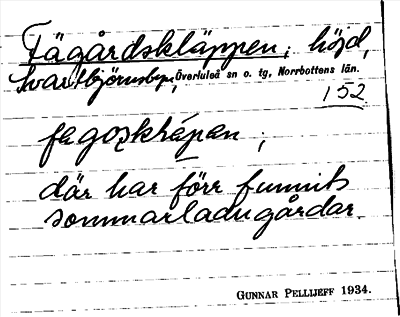 Fägårdskläppen; höjd,
Svartbjörnsbyn, Överluleå sn o. tg, Norrbottens län.
152
där har förr funnits
sommarladugårdar.
GUNNAR PELLIJEFF 1934.